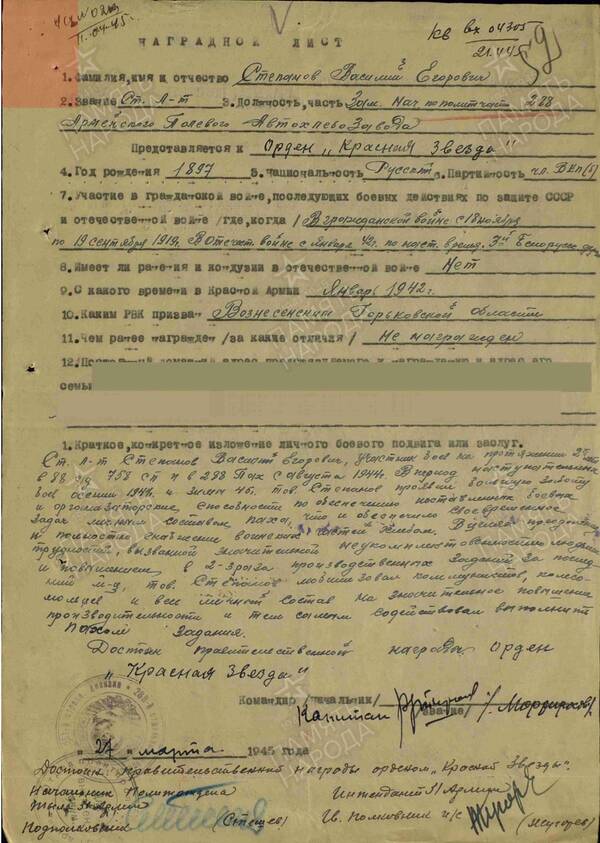 НАГРАДНОЙ ЛИСТ
КВ вх 04305
21.4.45
1. Фамилия, имя и отчество Степанов Василий Егорович
2. Звание Ст. Л-т 3. Должность, часть Зам. Нач. по политчасти 288
Армейского Полевого Автохлебозавода
Представляется к Орден „Красная Звезда"
4. Год рождения 1897 5. Национальность Русский 6. Партийность чл. ВКП(б)
7. Участие в гражданской войне, последующих боевых действиях по защите СССР
и отечественной войне /где, когда/ В гражданской войне с 18 ноября
по 19 сентября 1919г. В Отечест. войне с января 42г. по наст. время. 3й Белорусс. фр.
8. Имеет ли ранения и контузии в отечественной войне Нет
9. С какого времени в Красной Армии Январь 1942г.
10. Каким РВК призван Вознесенский Горьковской области
11. Чем ранее награжден /за какие отличия/ Не награжден
12. Постоянный домашний адрес представляемого к награждению и адрес его
семьи
1. Краткое, конкретное изложение личного боевого подвига или заслуг.
Ст. Л-т Степанов Василий Егорович, участник боев на протяжении
в 88 сд 758 сп и в 288 Пах с августа 1944г. В период наступательных
боев осени 1944г. и зимы 45. тов. Степанов проявил большую заботу
и организаторские способности по обеспечению поставленных боевых
задач личным составом паха, что и обеспечило своевременное
и полностью снабжение воинских частей хлебом. В целях преодоления
трудностей, вызванных значительной неукомплектованностью людьми
и повышением в 2-3 раза производственных заданий за послед-
ний м-ц, тов. Степанов мобилизовал коммунистов, комсо-
мольцев и весь личный состав на значительное повышение
производительности и тем самым содействовал выполнить
Пахом задания.
Достоин правительственной награды Орден
„Красная Звезда"
Командир /начальник/
Капитан /звание/ /Мардирасов/
„27" марта 1945 года
Достоин правительственной награды орденом „Красной Звезды".
Начальник Политотдела Интендант 31 Армии
Тыла 31 Армии Гв. Полковник и/с
Подполковник (Стецев)